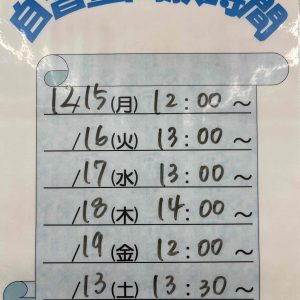 自習室開放時間
12/15(月) 12:00～
/16(火) 13:00～
/17(水) 13:00～
/18(木) 14:00～
/19(金) 12:00～
/13(土) 13:30～